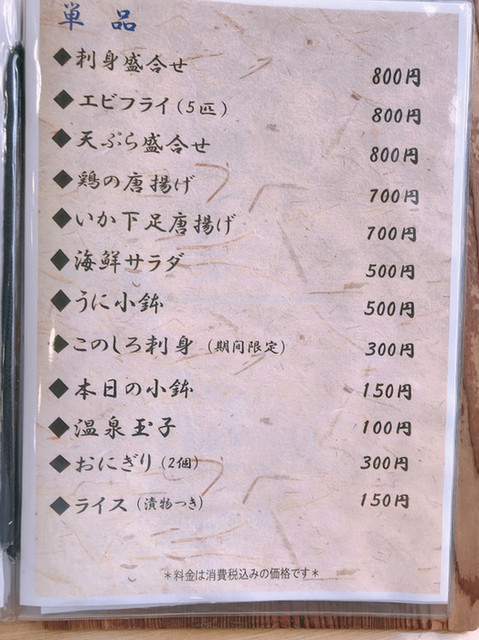 単品
◆刺身盛合せ 800円
◆エビフライ(5匹) 800円
◆天ぷら盛合せ 800円
◆鶏の唐揚げ 700円
◆いか下足唐揚げ 700円
◆海鮮サラダ 500円
◆うに小鉢 500円
◆このしろ刺身(期間限定) 300円
◆本日の小鉢 150円
◆温泉玉子 100円
◆おにぎり(2個) 300円
◆ライス(漬物つき) 150円
＊料金は消費税込みの価格です＊